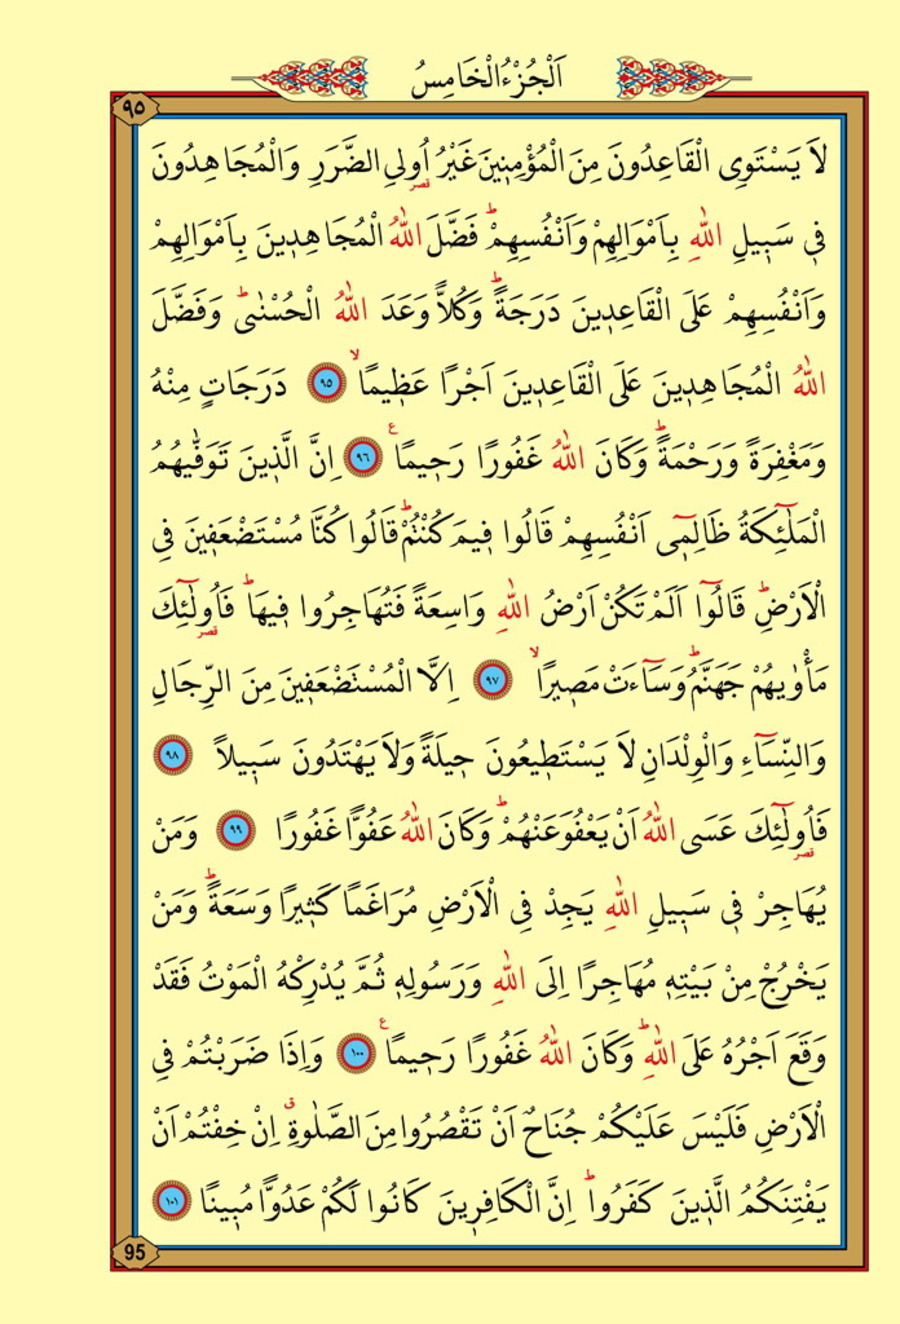 اَلْجُزْءُ الْخَامِسُ
٩٥
لاَ يَسْتَوِى الْقَاعِدُونَ مِنَ الْمُؤْمِنٖينَ غَيْرُ اُولِى الضَّرَرِ وَالْمُجَاهِدُونَ
قصر
فٖى سَبٖيلِ اللّٰهِ بِاَمْوَالِهِمْ وَاَنْفُسِهِمْ ط فَضَّلَ اللّٰهُ الْمُجَاهِدٖينَ بِاَمْوَالِهِمْ
وَاَنْفُسِهِمْ عَلَى الْقَاعِدٖينَ دَرَجَةً ط وَكُلاًّ وَعَدَ اللّٰهُ الْحُسْنٰى ط وَفَضَّلَ
اللّٰهُ الْمُجَاهِدٖينَ عَلَى الْقَاعِدٖينَ اَجْرًا عَظٖيمًا لا ٩٥ دَرَجَاتٍ مِنْهُ
وَمَغْفِرَةً وَرَحْمَةً ط وَكَانَ اللّٰهُ غَفُورًا رَحٖيمًا ع ٩٦ اِنَّ الَّذٖينَ تَوَفّٰيهُمُ
الْمَلٰٓئِكَةُ ظَالِمٖٓى اَنْفُسِهِمْ قَالُوا فٖيمَ كُنْتُمْ ط قَالُوا كُنَّا مُسْتَضْعَفٖينَ فِى
الْاَرْضِ ط قَالُٓوا اَلَمْ تَكُنْ اَرْضُ اللّٰهِ وَاسِعَةً فَتُهَاجِرُوا فٖيهَا ط فَاُولٰٓئِكَ
قصر
مَأْوٰيهُمْ جَهَنَّمُ ط وَسَٓاءَتْ مَصٖيرًا لا ٩٧ اِلَّا الْمُسْتَضْعَفٖينَ مِنَ الرِّجَالِ
وَالنِّسَٓاءِ وَالْوِلْدَانِ لاَ يَسْتَطٖيعُونَ حٖيلَةً وَلاَ يَهْتَدُونَ سَبٖيلاً ٩٨
فَاُولٰٓئِكَ عَسَى اللّٰهُ اَنْ يَعْفُوَ عَنْهُمْ ط وَكَانَ اللّٰهُ عَفُوًّا غَفُورًا ٩٩ وَمَنْ
قصر
يُهَاجِرْ فٖى سَبٖيلِ اللّٰهِ يَجِدْ فِى الْاَرْضِ مُرَاغَمًا كَثٖيرًا وَسَعَةً ط وَمَنْ
يَخْرُجْ مِنْ بَيْتِهٖ مُهَاجِرًا اِلَى اللّٰهِ وَرَسُولِهٖ ثُمَّ يُدْرِكْهُ الْمَوْتُ فَقَدْ
وَقَعَ اَجْرُهُ عَلَى اللّٰهِ ط وَكَانَ اللّٰهُ غَفُورًا رَحٖيمًا ع ١٠٠ وَاِذَا ضَرَبْتُمْ فِى
الْاَرْضِ فَلَيْسَ عَلَيْكُمْ جُنَاحٌ اَنْ تَقْصُرُوا مِنَ الصَّلٰوةِ ق اِنْ خِفْتُمْ اَنْ
يَفْتِنَكُمُ الَّذٖينَ كَفَرُوا ط اِنَّ الْكَافِرٖينَ كَانُوا لَكُمْ عَدُوًّا مُبٖينًا ١٠١
95